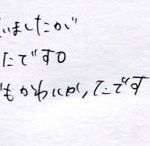 いましたが
たです。
もかわいかったです